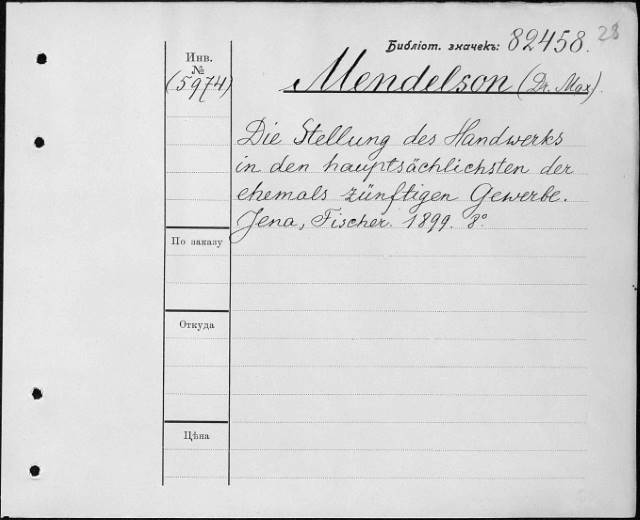 Библіот. значекъ: 82458. 28
Инв.
№
(5974)
Mendelson (Dr. Max).
Die Stellung des Handwerks
in den hauptsächlichsten der
ehemals zünftigen Gewerbe.
Jena, Fischer. 1899. 8°
По заказу
Откуда
Цѣна